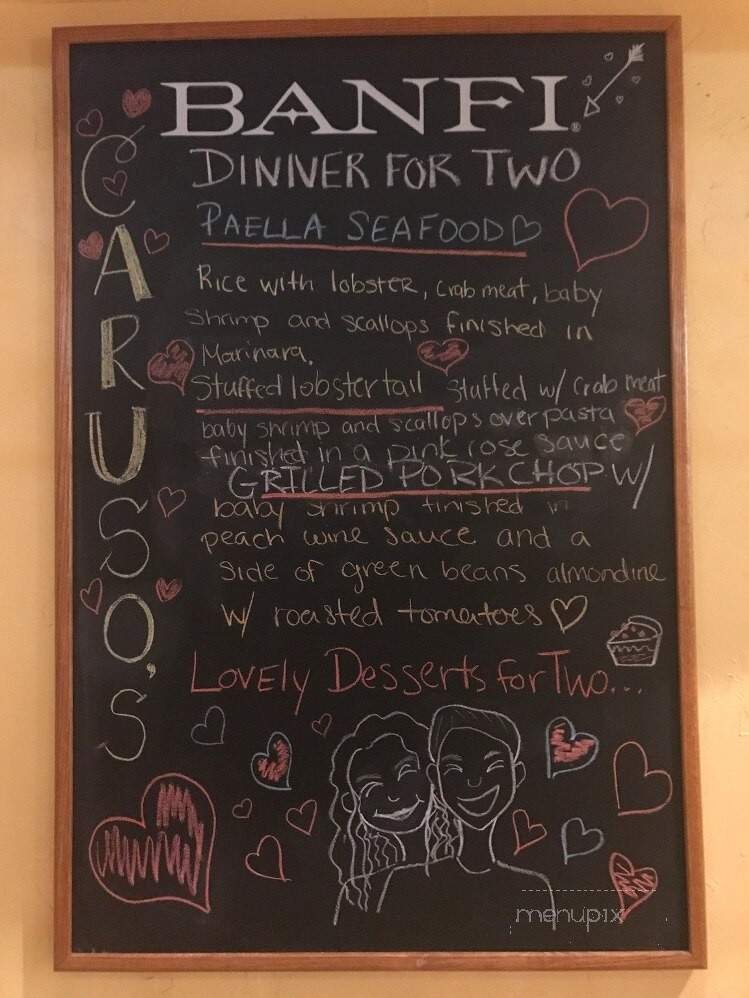 BANFI®
CARUSO'S
DINNER FOR TWO
PAELLA SEAFOOD
Rice with lobster, Crab meat, baby
Shrimp and scallops finished in
Marinara.
Stuffed lobster tail Stuffed w/ Crab meat
baby shrimp and scallops over pasta
finished in a pink rose sauce
GRILLED PORK CHOP W/
baby shrimp finished in
peach wine sauce and a
side of green beans almondine
w/ roasted tomatoes
Lovely Desserts for Two...
menupix